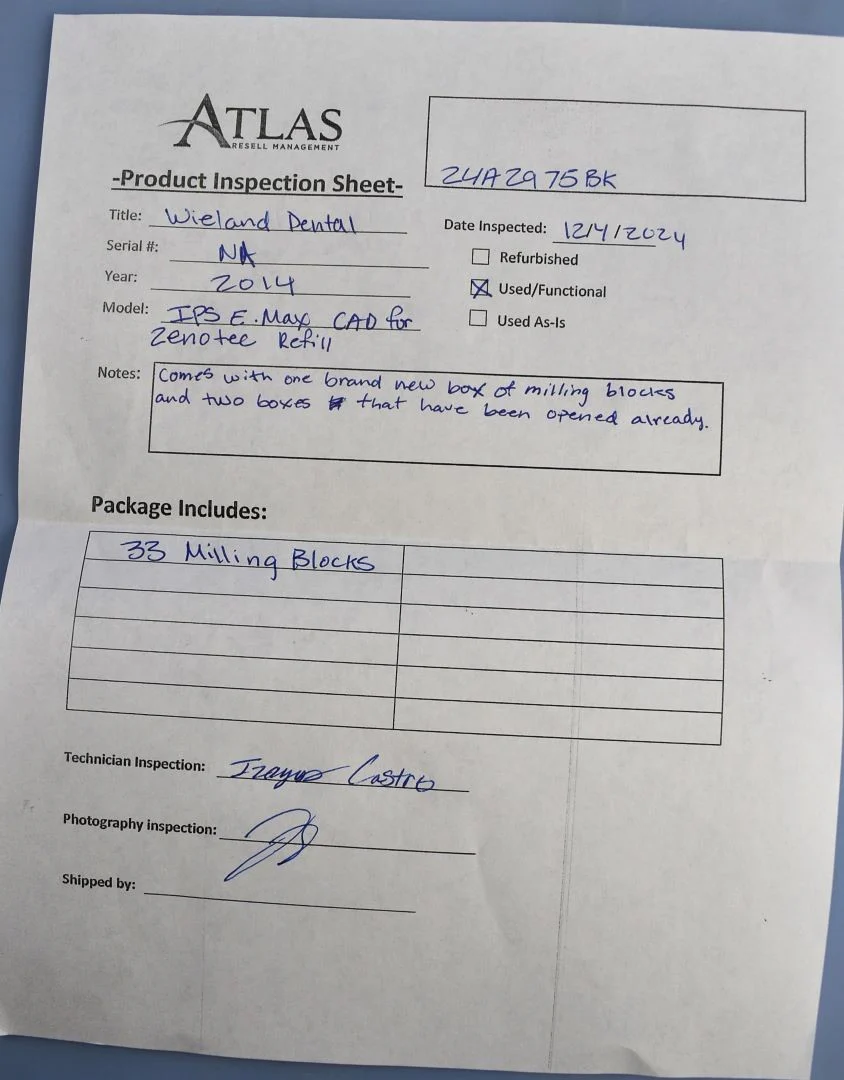 ATLAS
RESELL MANAGEMENT
24A2975BK
-Product Inspection Sheet-
Title: Wieland Dental
Date Inspected: 12/4/2024
Serial #: NA
Refurbished
Year: 2014
Used/Functional
Model: IPS E.Max CAD for
Zenotec Refill
Used As-Is
Notes: Comes with one brand new box of milling blocks
and two boxes that have been opened already.
Package Includes:
33 Milling Blocks
Technician Inspection: Castro
Photography inspection:
Shipped by: